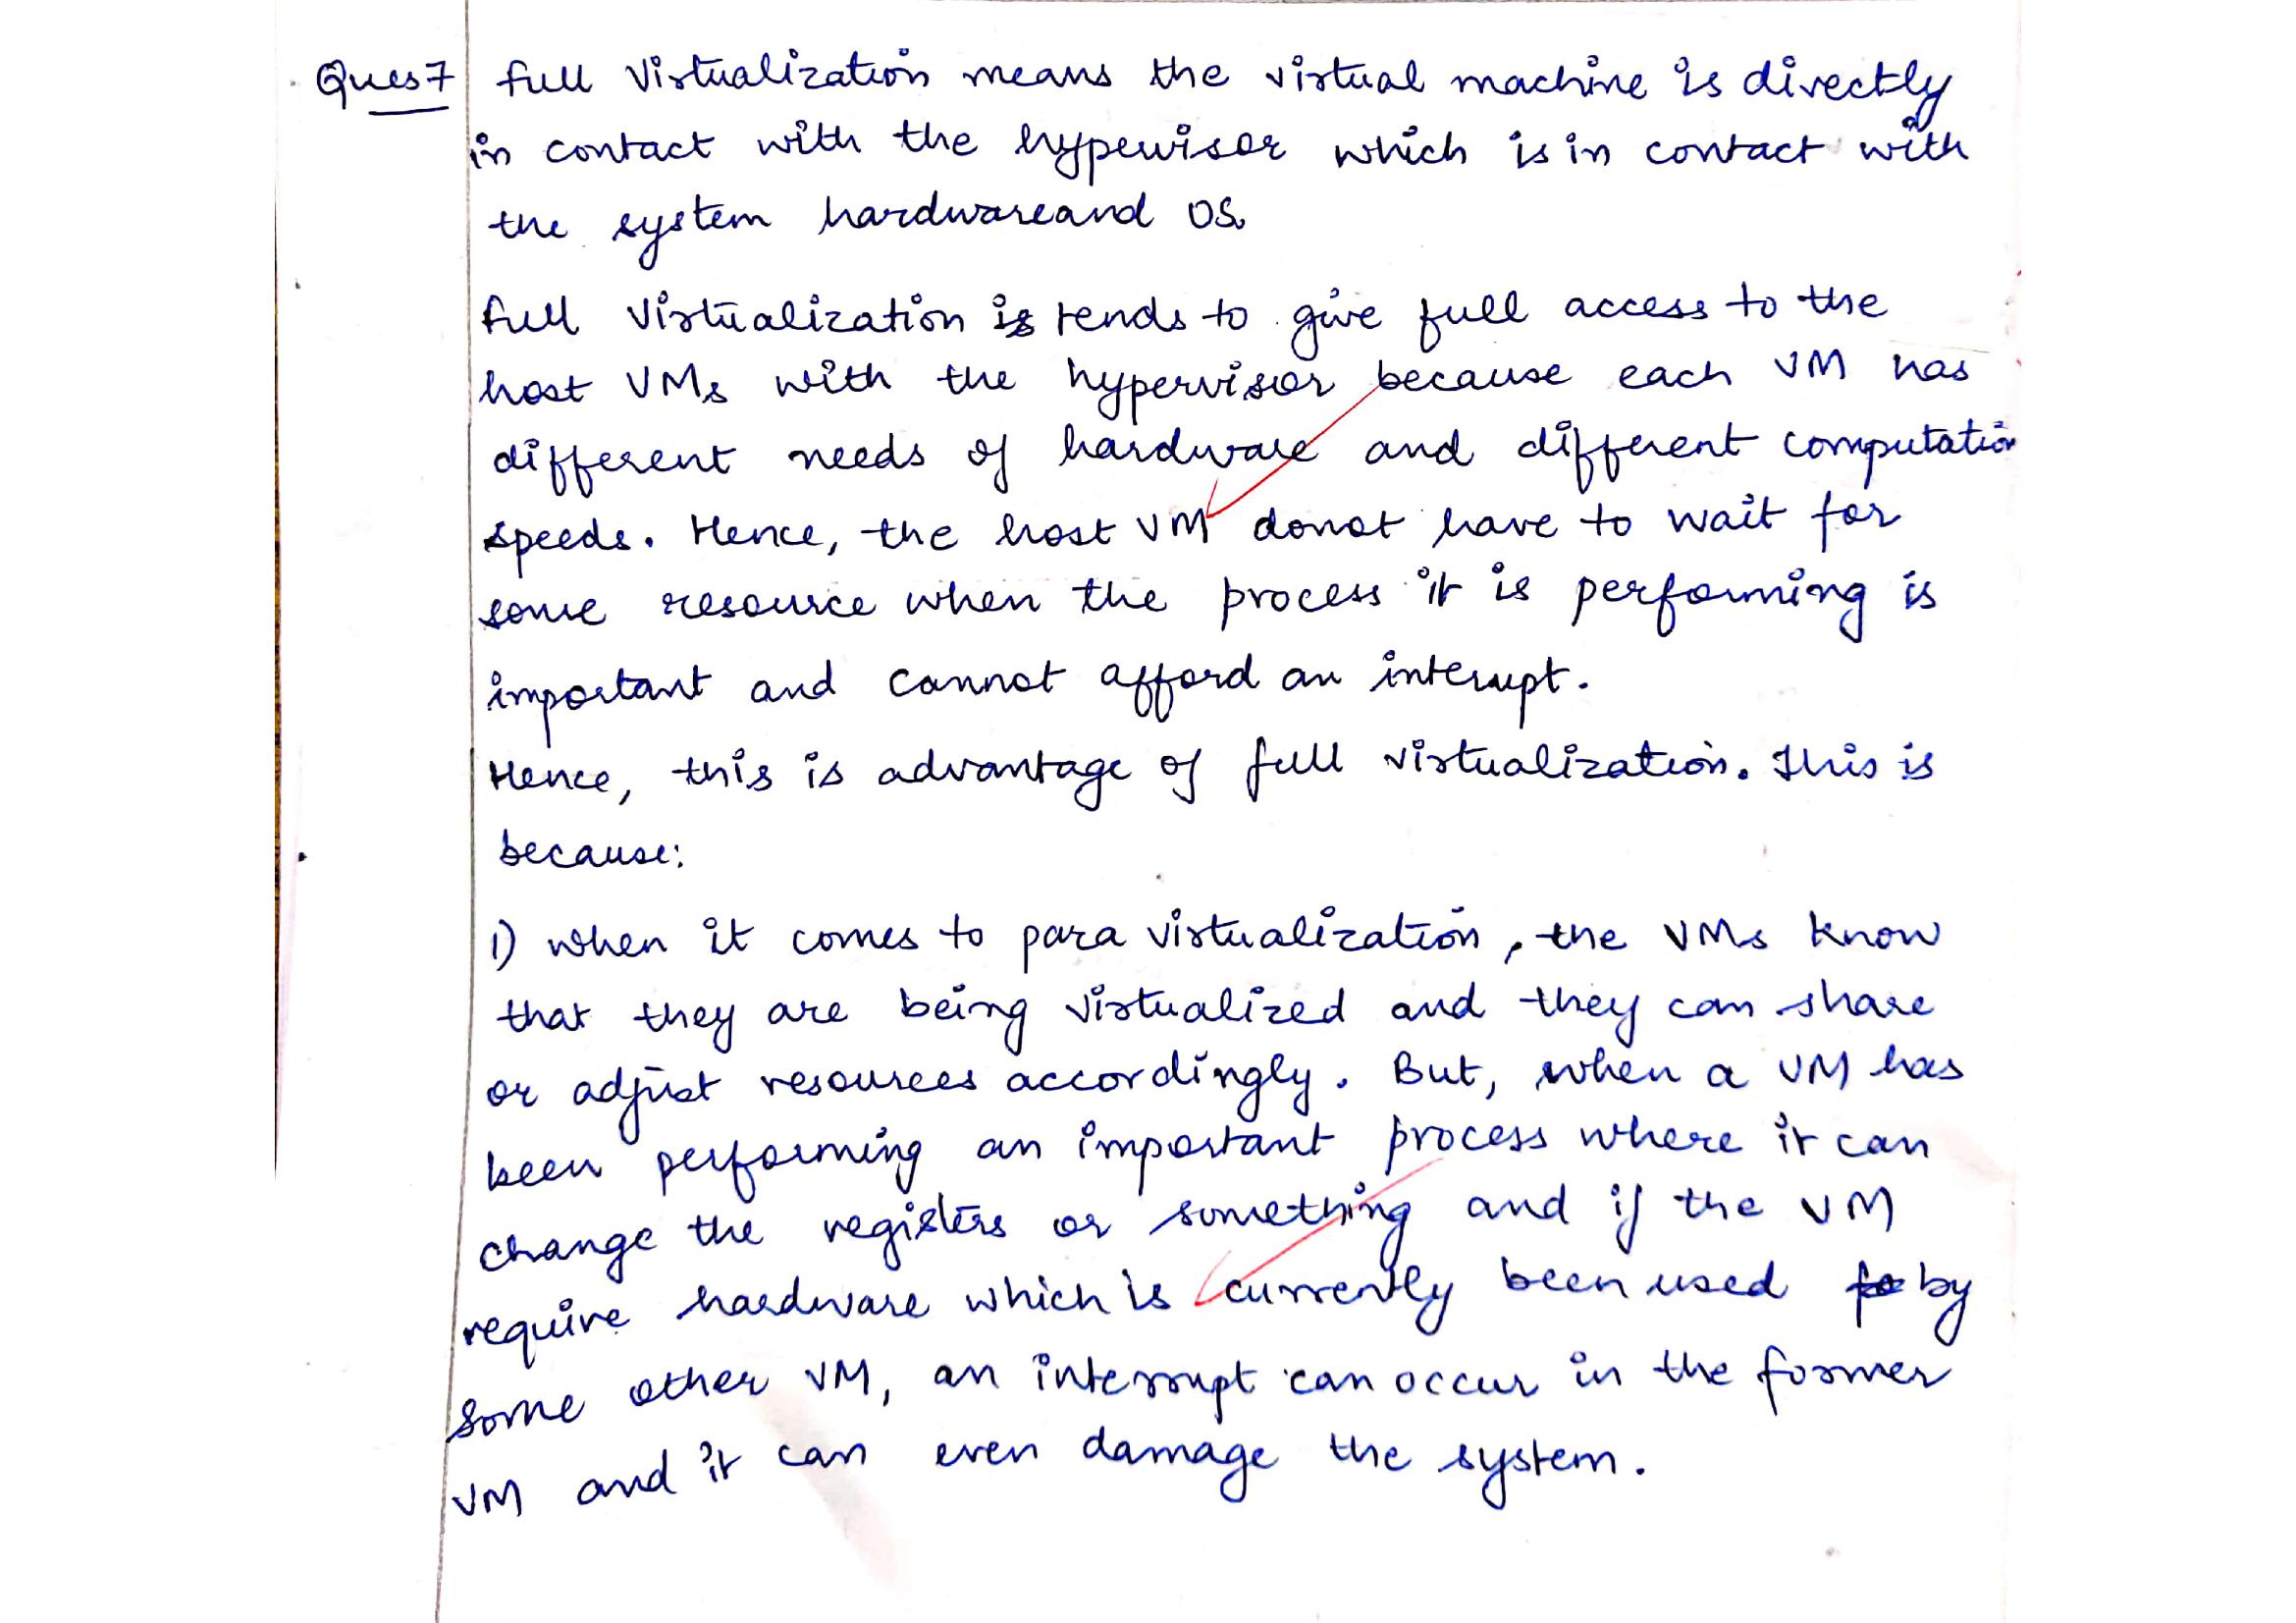 Ques7 full Virtualization means the virtual machine is directly
in contact with the hypervisor which is in contact with
the system hardwareand OS.
full Virtualization is tends to give full access to the
host VMs with the hypervisor because each VM has
different needs of hardware and different computation
speeds. Hence, the host VM donot have to wait for
some resource when the process it is performing is
important and cannot afford an interupt.
Hence, this is advantage of full virtualization. This is
because:
1) when it comes to para virtualization, the VMs know
that they are being virtualized and they can share
or adjust resources accordingly. But, when a VM has
been performing an important process where it can
change the registers or something and if the VM
require hardware which is currently been used by
some other VM, an interrupt can occur in the former
VM and it can even damage the system.